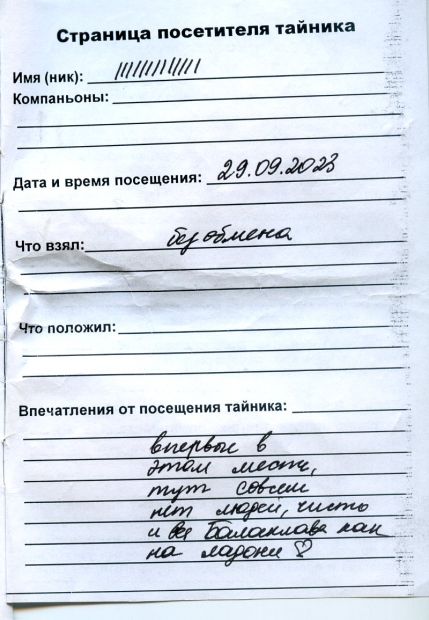 Страница посетителя тайника
Имя (ник): ////////////
Компаньоны:
Дата и время посещения: 29.09.2023
Что взял: без обмена
Что положил:
Впечатления от посещения тайника:
впервые в
этом месте,
тут совсем
нет людей, чисто
и вся Балаклава как
на ладони ♡